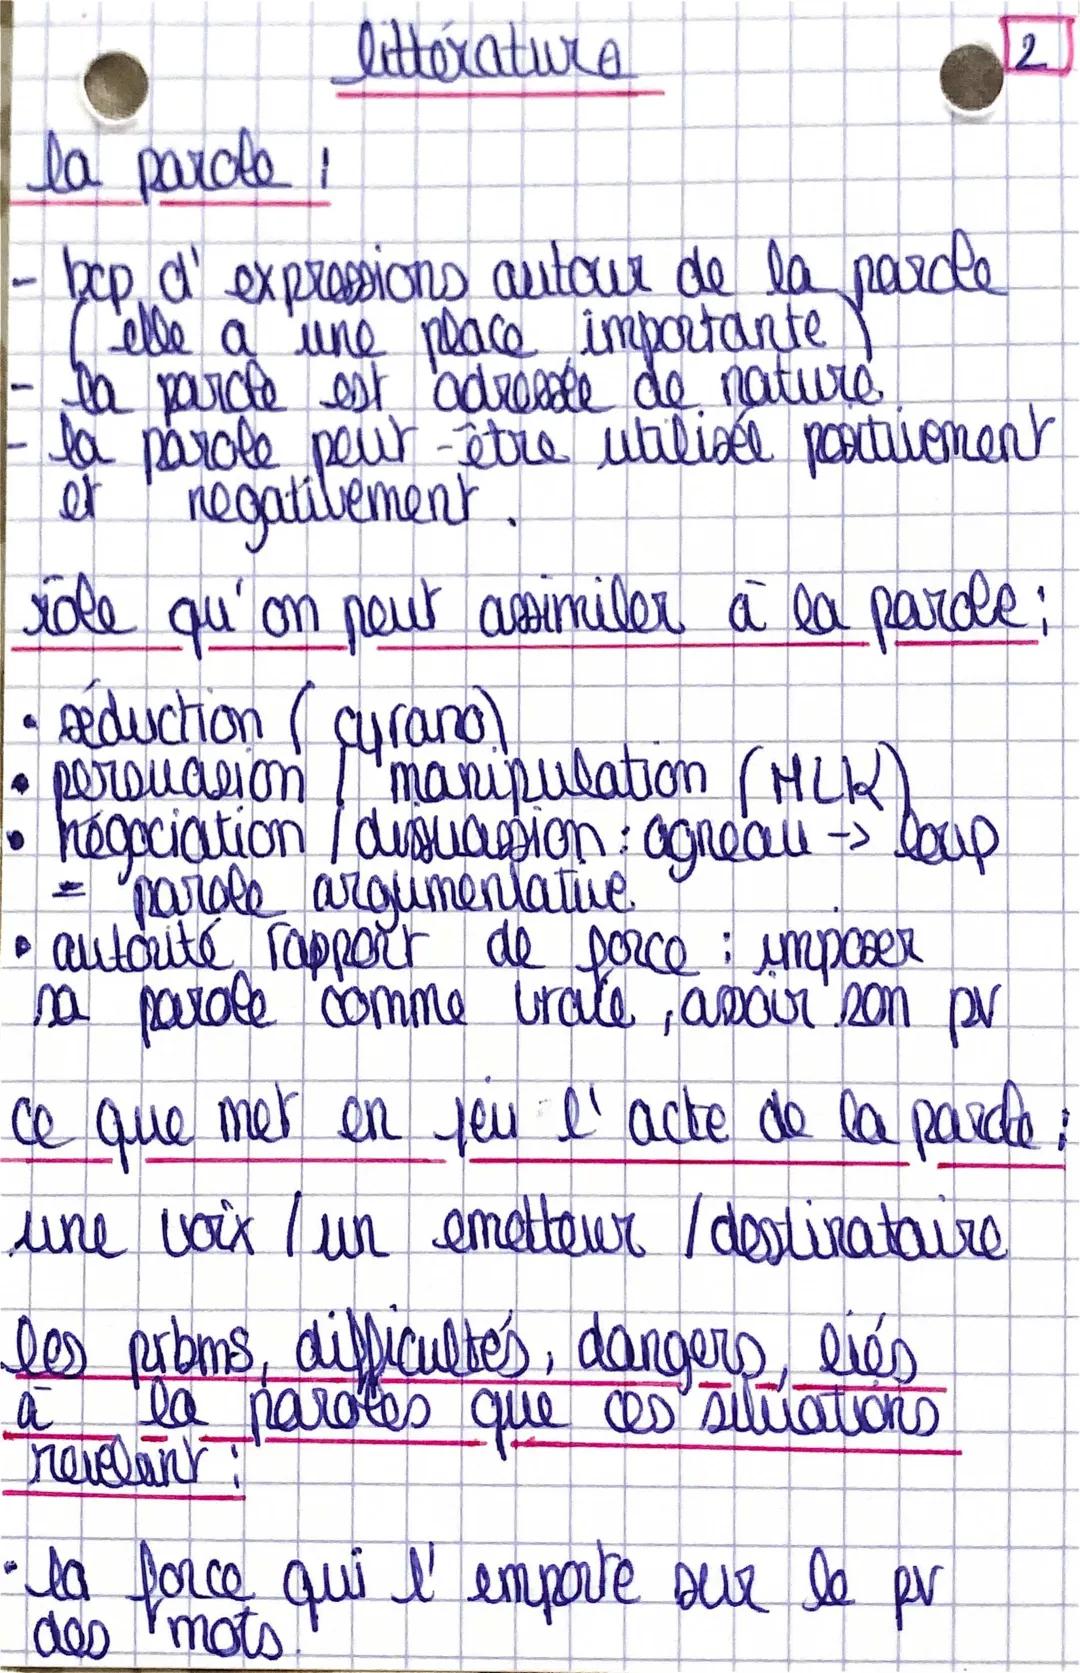 littérature
2
la parole :
- bcp d'expressions autour de la parole
( elle a une place importante )
- la parole est adressée de nature.
- la parole peut-être utilisée positivement
et negativement.
rôle qu'on peut assimiler à la parole :
• séduction ( cyrano )
• persuasion / manipulation ( MLK )
• négociation / dissuassion : agneau -> loup
= parole argumentative.
• autorité rapport de force : imposer
sa parole comme vraie, assoir son pv
ce que met en jeu l'acte de la parole :
une voix / un emetteur / destinataire
les prbms, difficultés, dangers, liés
à la paroles que ces situations
revelant :
- la force qui l'emporte sur le pv
des mots.